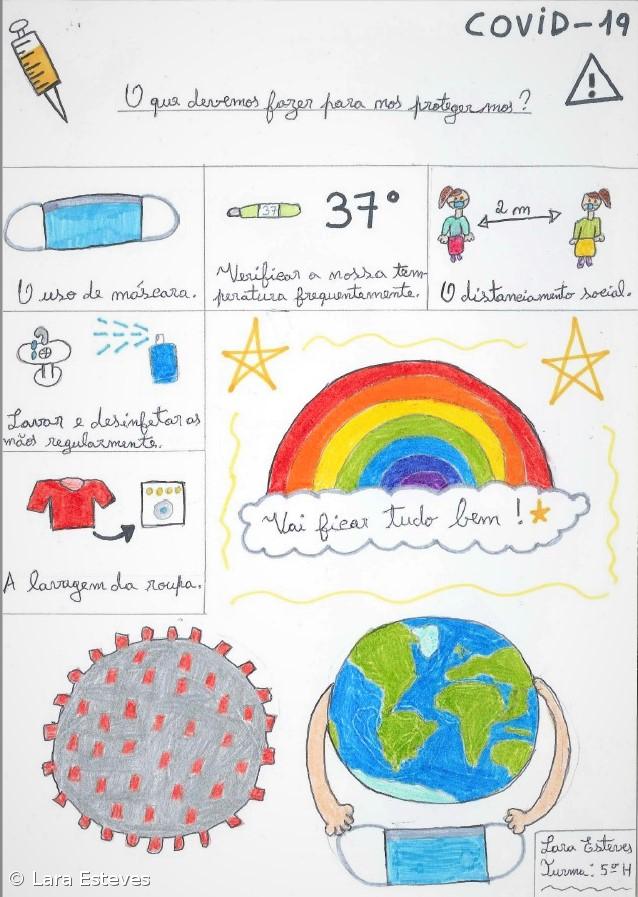 COVID-19
O que devemos fazer para nos protegermos?
!
37
37°
2 m
O uso de máscara.
Verificar a nossa tem-
peratura frequentemente.
O distanciamento social.
Lavar e desinfetar as
mãos regularmente.
Vai ficar tudo bem!
A lavagem da roupa.
Lara Esteves
Turma: 5º H
© Lara Esteves